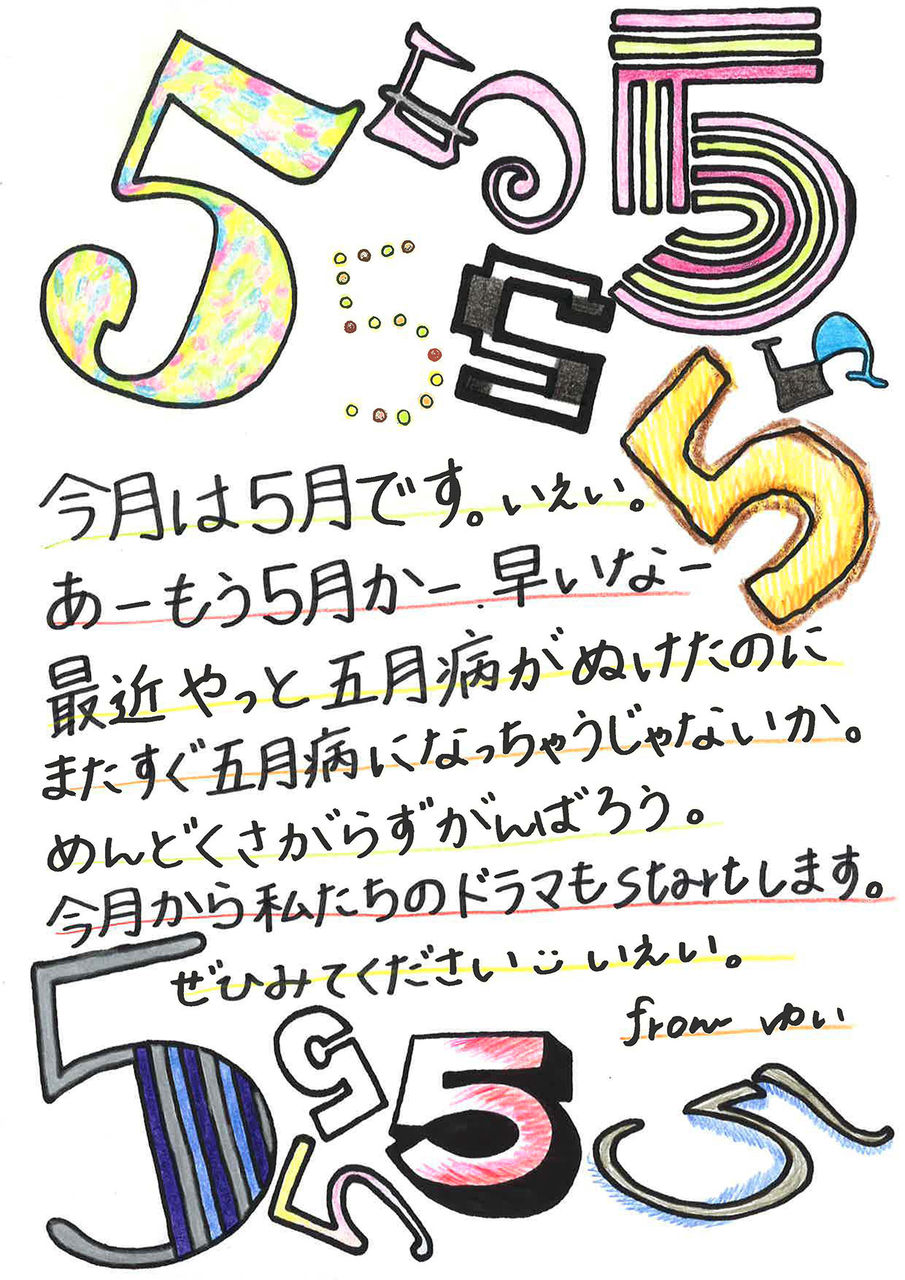 5 5 5
5 5 5
5
今月は5月です。いえい。
あーもう5月かー.早いなー
最近やっと五月病がぬけたのに
またすぐ五月病になっちゃうじゃないか。
めんどくさがらずがんばろう。
今月から私たちのドラマもstartします。
ぜひみてください:)いえい。
from ゆい
5 5 5 5
5